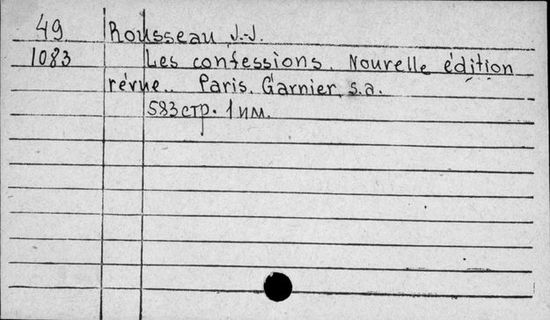 49 Rousseau J.-J.
1083 Les confessions. Nouvelle édition
révue.. Paris. Garnier, s.a.
583 стр. 1 илл.